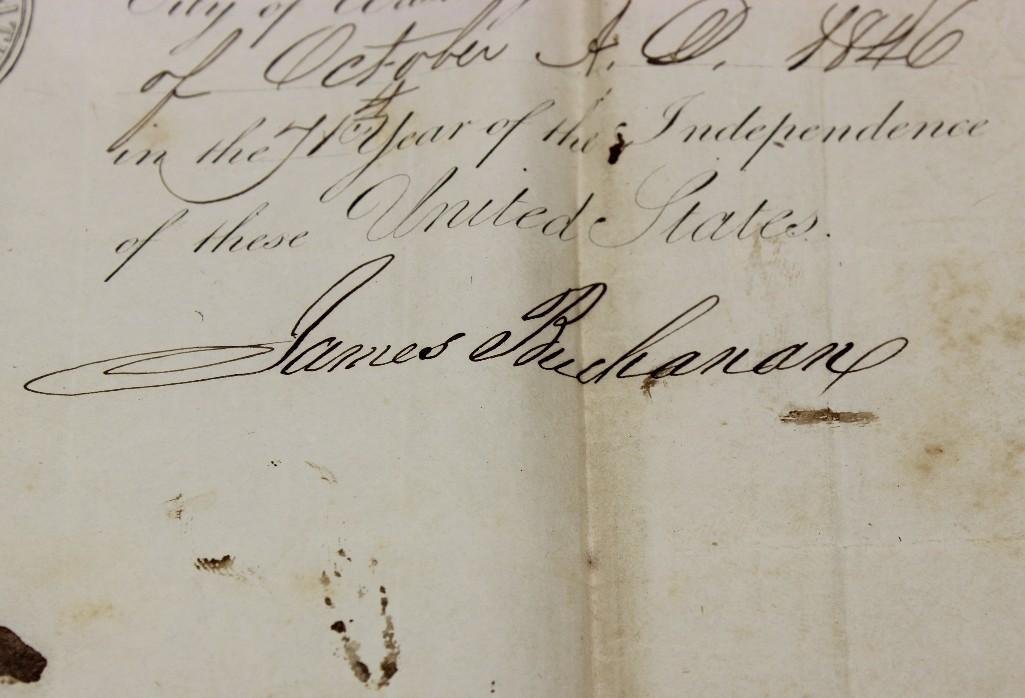 City of
of October A. D. 1846
in the 71st Year of the Independence
of these United States.
James Buchanan